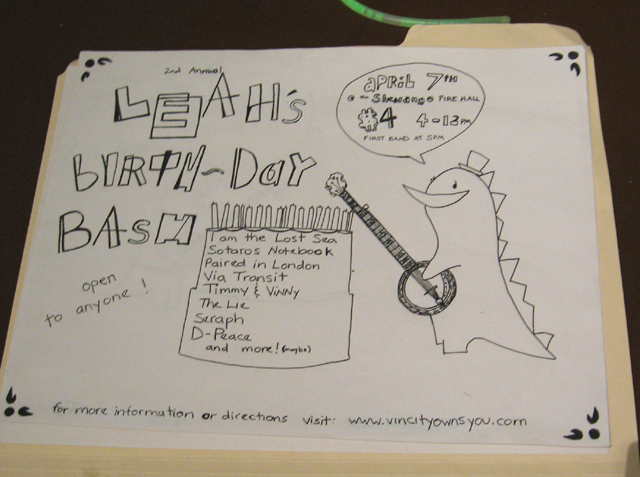 2nd Annual
LEAH's
BIRTH-DAY
BASH
open
to anyone!
APRIL 7TH
@ ~ Shenango FIRE HALL
#4 4-12PM
FIRST BAND AT 5PM
I am the Lost Sea
Sotaros Notebook
Paired in London
Via Transit
Timmy & Vinny
The Lie
Seraph
D-Peace
and more! (maybe)
for more information or directions visit: www.vincityownsyou.com